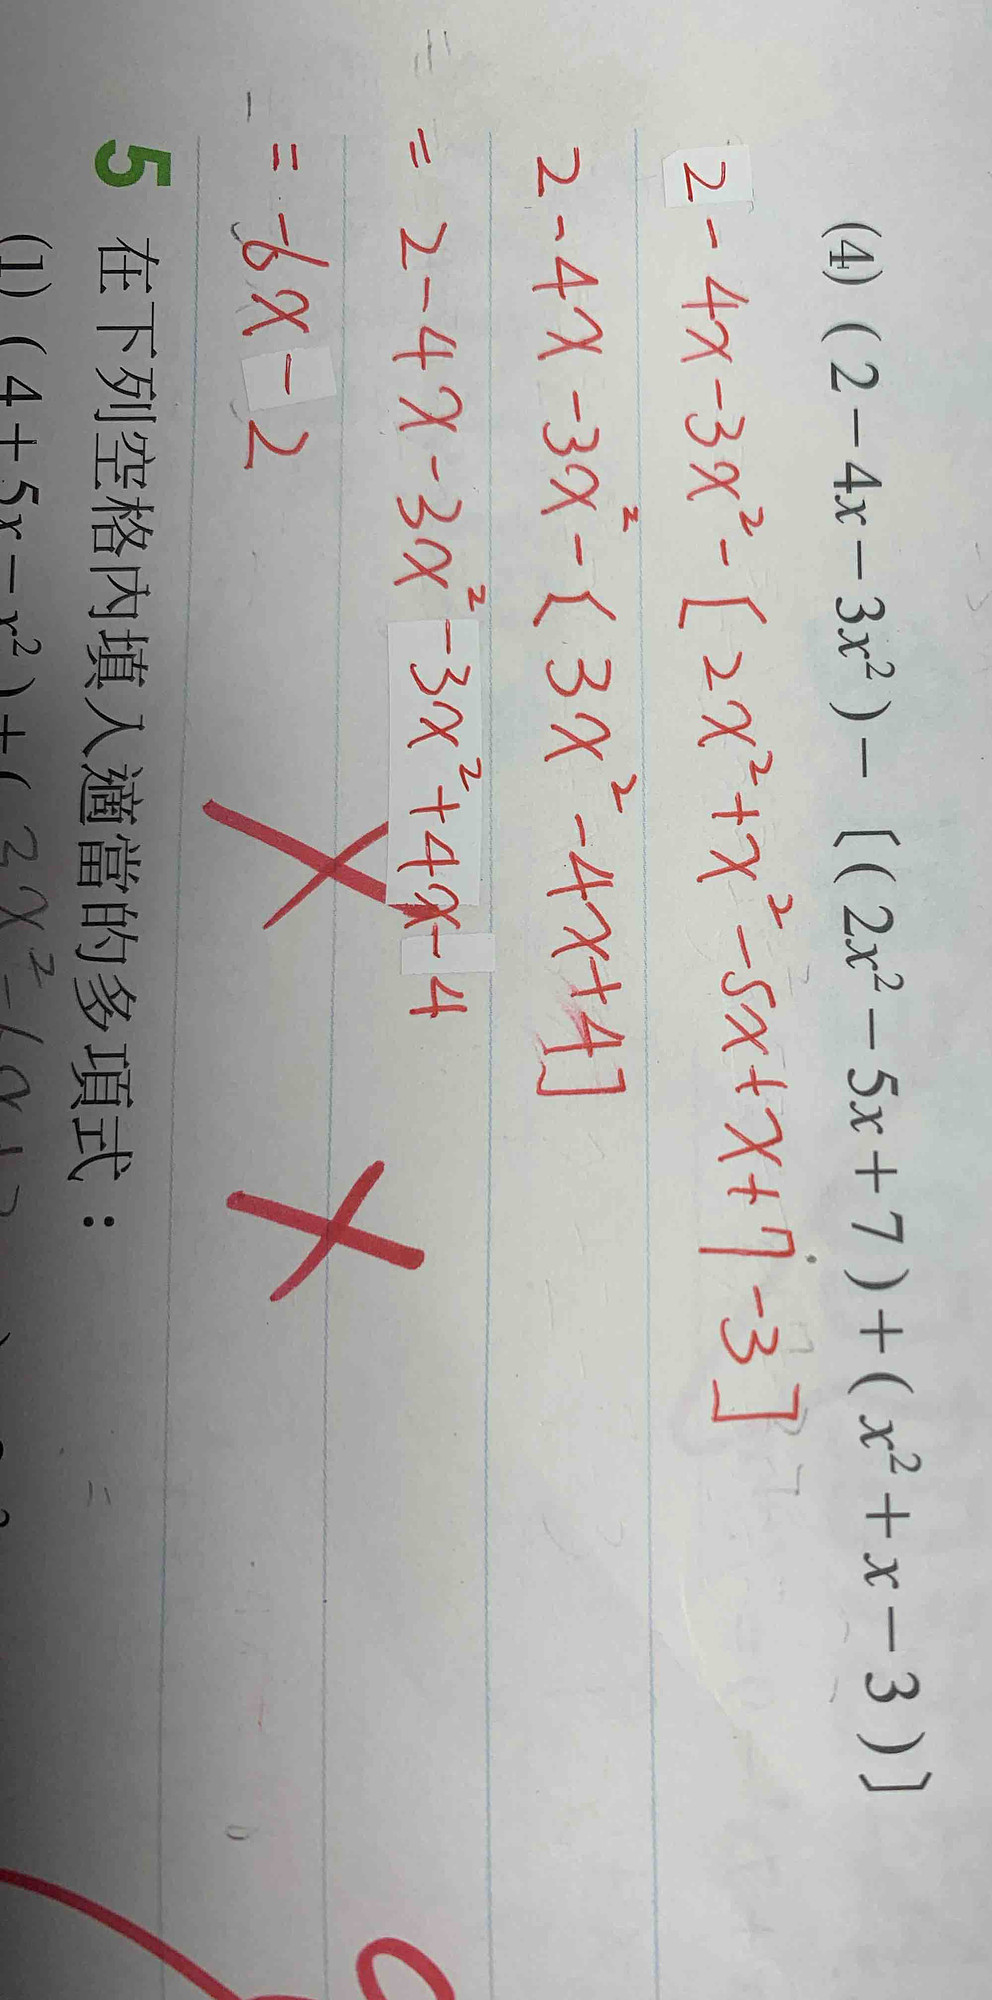 (4) (2-4x-3x²)-〔(2x²-5x+7)+(x²+x-3)〕
2-4x-3x²-[2x²+x²-5x+x+7-3]
2-4x-3x²-[3x²-4x+4]
=2-4x-3x²-3x²+4x-4
=-6x-2
5 在下列空格內填入適當的多項式：
(1) (4+5x-x²)+(